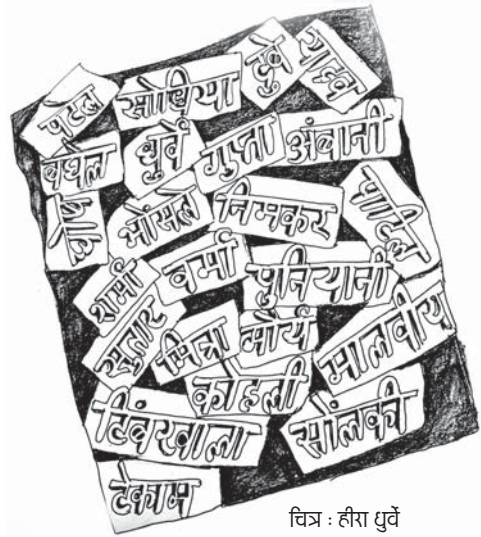 पटेल सोंधिया दुबे यादव
बघेल धुर्वे गुप्ता अंबानी
घोष भोंसले निमकर पाटिल
शर्मा वर्मा पुनियानी
सुतार मित्रा मौर्य मालवीय
कोहली
टिंबरवाला सोंलकी
टेकाम
चित्र : हीरा धुर्वे